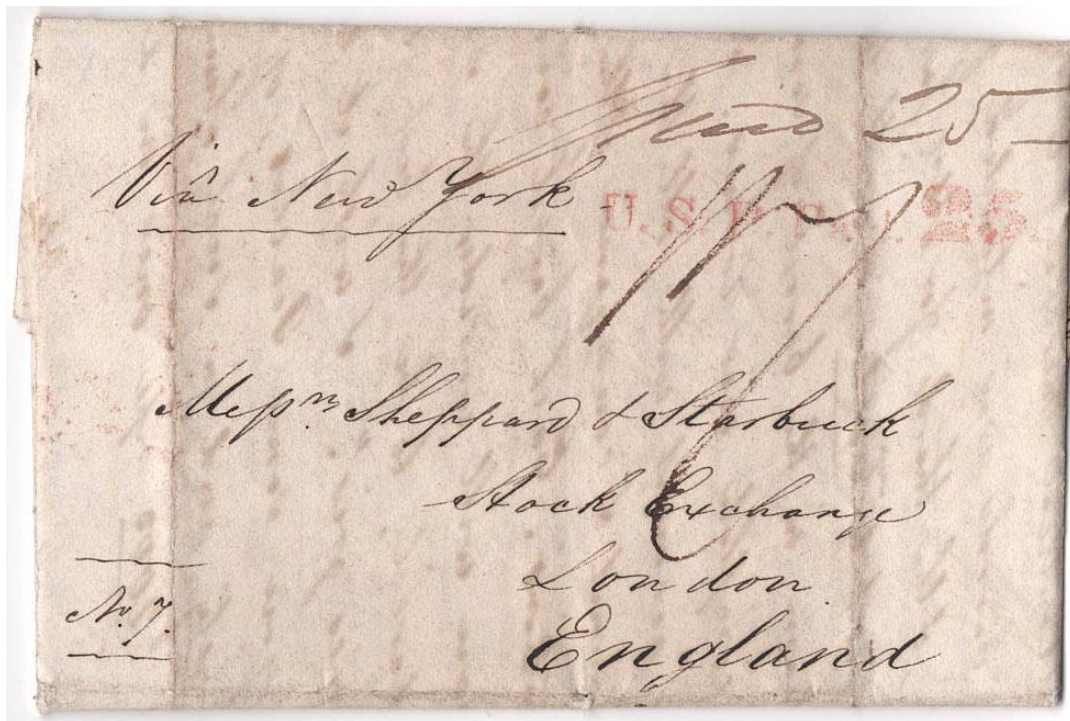 Paid 25
Via New York
U.S. P 25.
Messrs. Sheppard & Starbuck
Stock Exchange
London.
England
No. 7.